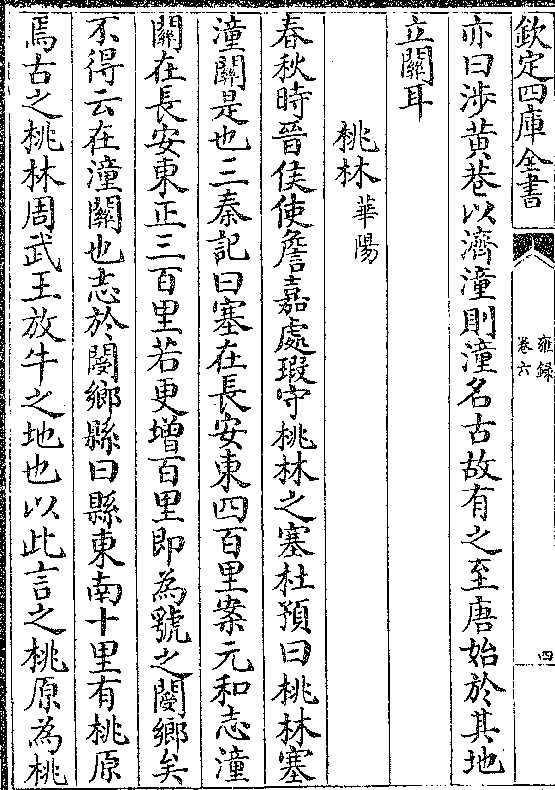 欽定四庫全書
雍録
卷六
四
亦曰涉黄巷以濟潼則潼名古故有之至唐始於其地
立關耳
桃林華陽
春秋時晉侯使詹嘉處瑕守桃林之塞杜預曰桃林塞
潼關是也三秦記曰塞在長安東四百里案元和志潼
關在長安東正三百里若更增百里即為虢之閿鄉矣
不得云在潼關也志於閿鄉縣曰縣東南十里有桃原
焉古之桃林周武王放牛之地也以此言之桃原為桃